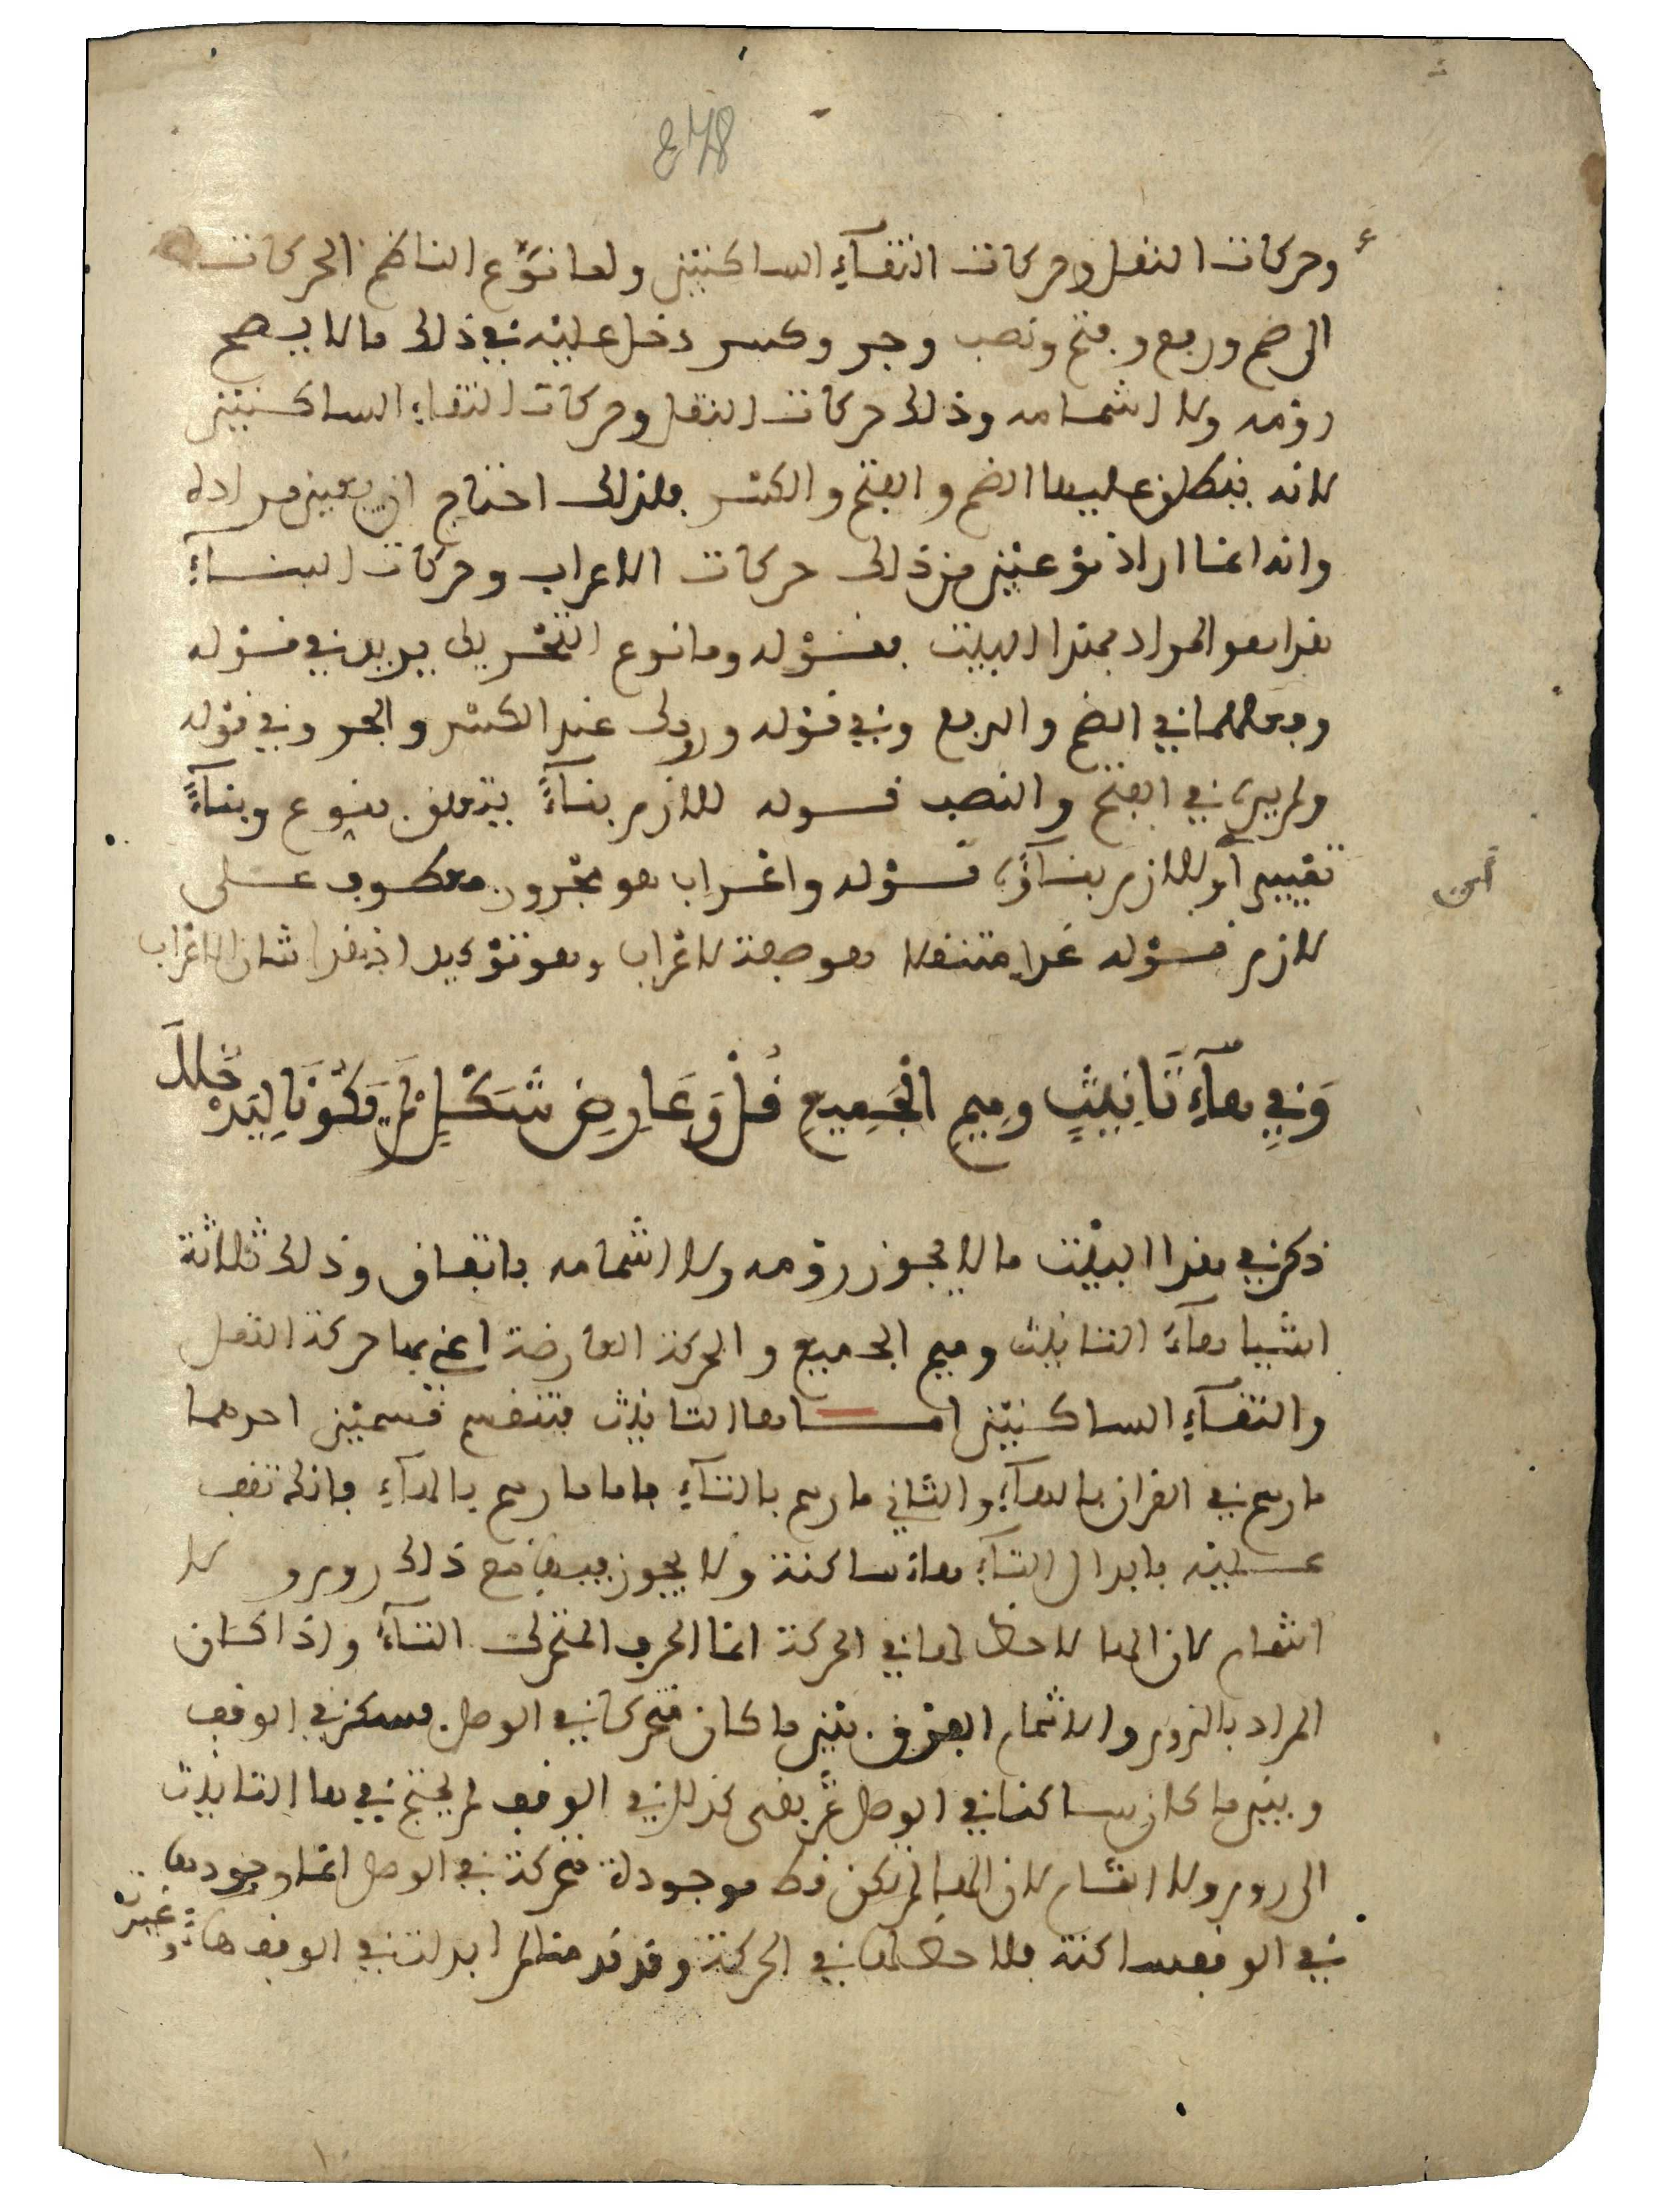 478
وحركات النقل وحركات التقآء الساكنين ولما نوّع الناظم الحركات
الى ضم ورفع وفتح ونصب وجر وكسر دخل عليه في ذلك ما لا يصح
رومه ولا اشمامه وذلك حركات النقل وحركات التقاء الساكنين
لانه ينطلق عليها الضم والفتح والكسر فلذلك احتاج ان يعين مراده
وانه انما اراد نوعين من ذلك حركات الاعراب وحركات البنآء
هذا هو المراد بهذا البيت فقوله وما نوع التحريك يريد في قوله
وفعلهما في الضم والرفع وفي قوله وروك عند الكسر والجر وفي قوله
ولم يره في الفتح والنصب قوله للازم بنآءً يتعلق بنوع وبنآءً
تمييز اي للازم بنآؤه قوله واعراب هو مجرور معطوف على
لازم قوله غدا متنقلا هو صفة لاعراب وهو توكيد اذ هذا شان الاعراب
وَفِي هَآءِ تَانِيثٍ وَمِيمِ الْجَمِيعِ قُلْ وَعَارِضِ شَكْلٍ لَمْ يَكُونَا لِيَدْخُلَا
ذكر في هذا البيت ما لا يجوز رومه ولا اشمامه باتفاق وذلك ثلاثة
اشيا هآء التانيث وميم الجميع والحركة العارضة اعني بها حركة النقل
والتقآء الساكنين اما ها التانيث فتنقسم قسمين احدهما
ما رسم في القران بالهآء والثاني ما رسم بالتآء فاما ما رسم بالهآء فانك تقف
عليه بابدال التآء هاء ساكنة ولا يجوز فيها مع ذلك روم ولا
اشمام لان الها لا حظ لها في الحركة انما الحرف المتحرك التآء واذا كان
المراد بالروم والاشمام الفرق بين ما كان متحركا في الوصل فسكن في الوقف
وبين ما كان ساكنا في الوصل ثم بقى كذلك في الوقف لم يحتج في ها التانيث
الى روم ولا اشمام لان الها لم تكن قط موجودة متحركة في الوصل انما وجودها
في الوقف ساكنة فلا حظ لها في الحركة وقد قدمنا لم ابدلت في الوقف هاء وغيرت